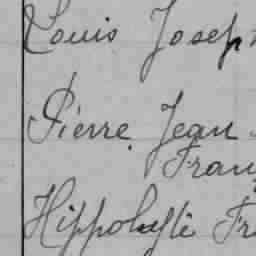 Louis Joseph
Pierre Jean
Fran
Hippolyte Fr